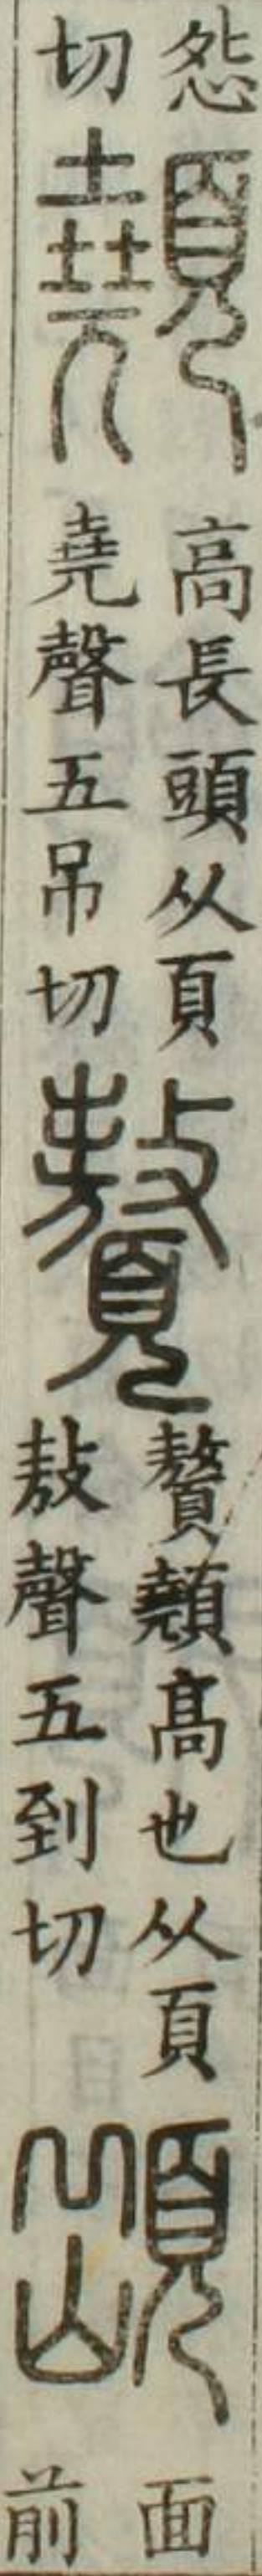 怨
切
顤
高長頭从頁
堯聲五吊切
䫨
贅顤高也从頁
敖聲五到切
面
前